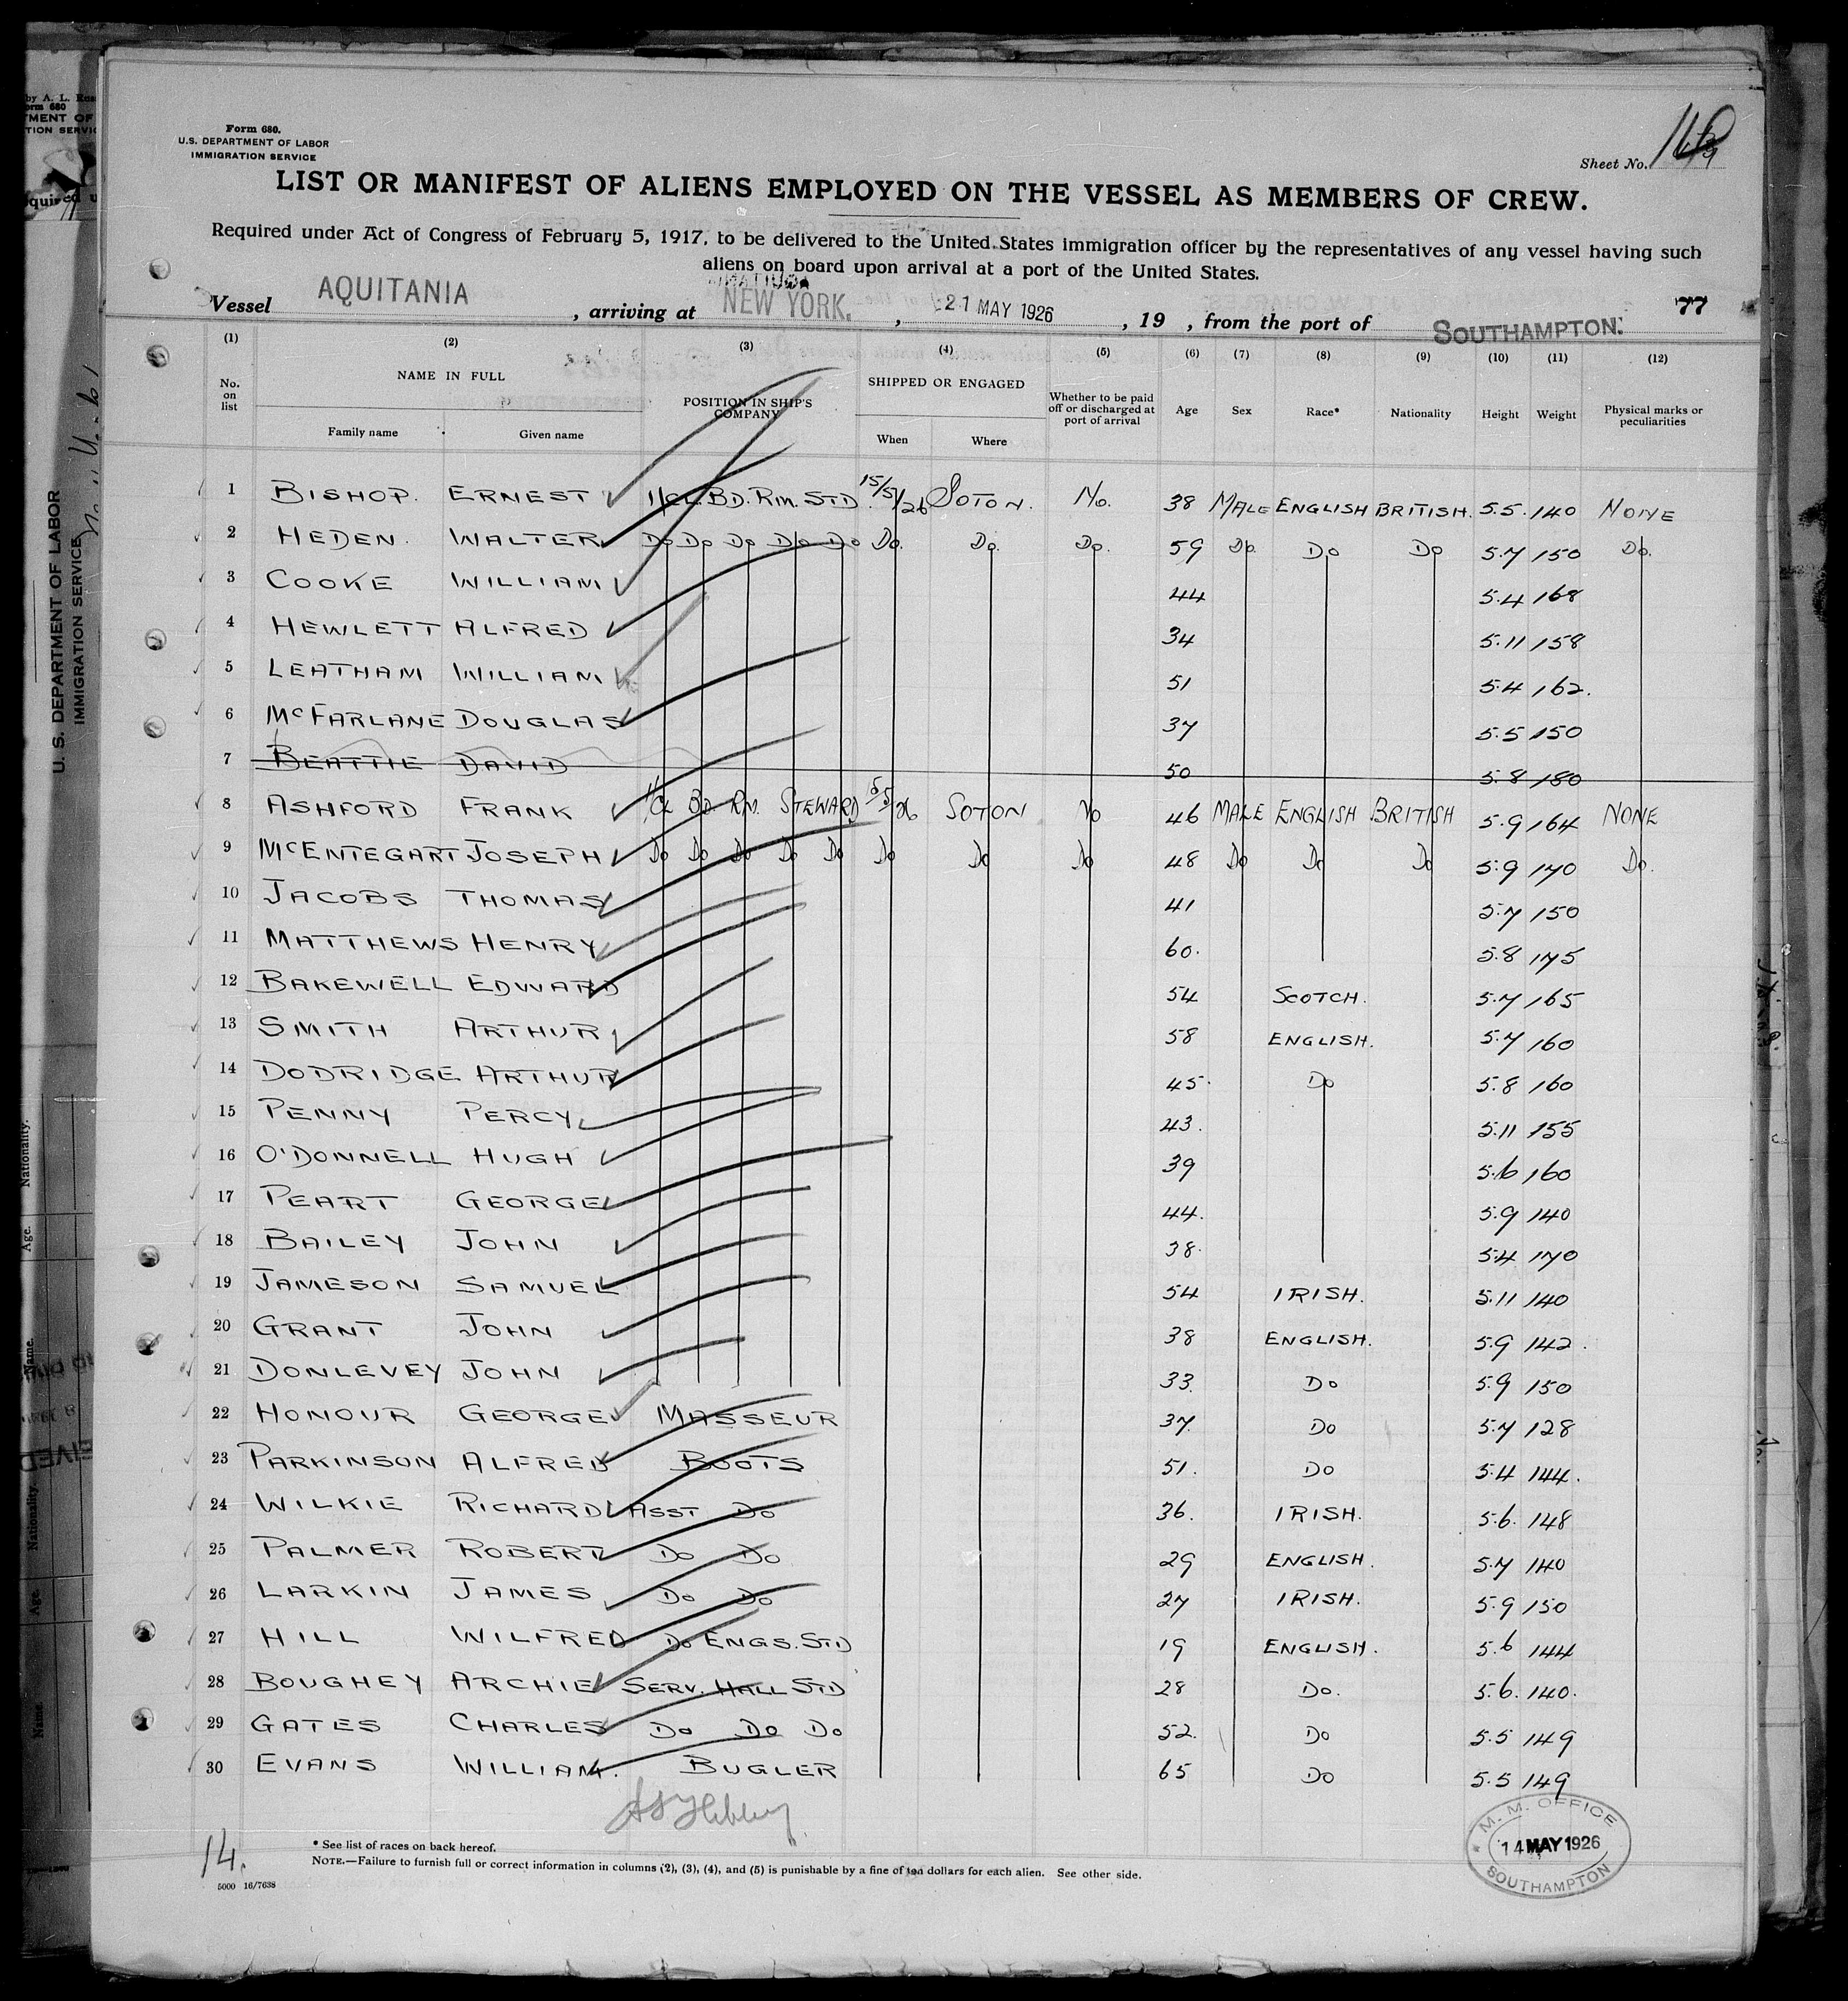 Form 680.
U.S. DEPARTMENT OF LABOR
IMMIGRATION SERVICE
Sheet No.
LIST OR MANIFEST OF ALIENS EMPLOYED ON THE VESSEL AS MEMBERS OF CREW.
Required under Act of Congress of February 5, 1917, to be delivered to the United States immigration officer by the representatives of any vessel having such
aliens on board upon arrival at a port of the United States.
Vessel AQUITANIA , arriving at NEW YORK. , 21 MAY 1926 , 19 , from the port of SOUTHAMPTON. 77
(1) (2) (3) (4) (5) (6) (7) (8) (9) (10) (11) (12)
No. on list NAME IN FULL Family name Given name POSITION IN SHIP'S COMPANY SHIPPED OR ENGAGED When Where Whether to be paid off or discharged at port of arrival Age Sex Race* Nationality Height Weight Physical marks or peculiarities
1 BISHOP. ERNEST 1/CL. BD. RM. STD 15/5/26 SOTON. No. 38 MALE ENGLISH BRITISH. 5.5. 140 NONE
2 HEDEN. WALTER Do Do Do Do Do Do. Do. Do. 59 Do. Do Do 5.7 150 Do.
3 COOKE WILLIAM 44 5.4 168
4 HEWLETT ALFRED 34 5.11 158
5 LEATHAM WILLIAM 51 5.4 162.
6 McFARLANE DOUGLAS 37 5.5 150
7 BEATTIE DAVID 50 5.8 180
8 ASHFORD FRANK 1/CL BD. RM. STEWARD SOTON No 46 MALE ENGLISH BRITISH 5.9 164 NONE
9 McENTEGART JOSEPH Do Do Do Do Do Do Do Do 48 Do Do Do 5.9 170 Do.
10 JACOBS THOMAS 41 5.7 150
11 MATTHEWS HENRY 60. 5.8 175
12 BAKEWELL EDWARD 54 SCOTCH. 5.7 165
13 SMITH ARTHUR 58 ENGLISH. 5.7 160
14 DODRIDGE ARTHUR 45. Do 5.8 160
15 PENNY PERCY 43. 5.11 155
16 O'DONNELL HUGH 39 5.6 160
17 PEART GEORGE 44. 5.9 140
18 BAILEY JOHN 38. 5.4 170
19 JAMESON SAMUEL 54 IRISH. 5.11 140
20 GRANT JOHN 38 ENGLISH. 5.9 142.
21 DONLEVEY JOHN 33. Do 5.9 150
22 HONOUR GEORGE MASSEUR 37. Do 5.7 128
23 PARKINSON ALFRED BOOTS 51. Do 5.4 144.
24 WILKIE RICHARD ASST Do 36. IRISH. 5.6. 148
25 PALMER ROBERT Do Do 29 ENGLISH. 5.7 140
26 LARKIN JAMES Do Do 27 IRISH. 5.9 150
27 HILL WILFRED Do ENGS. STD 19 ENGLISH. 5.6 144
28 BOUGHEY ARCHIE SERV. HALL STD 28 Do. 5.6. 140.
29 GATES CHARLES Do Do Do 52. Do 5.5 149
30 EVANS WILLIAM. BUGLER 65 Do 5.5 149
14.
* See list of races on back hereof.
NOTE.—Failure to furnish full or correct information in columns (2), (3), (4), and (5) is punishable by a fine of ten dollars for each alien. See other side.
5000 16/7638
M. M. OFFICE
14 MAY 1926
SOUTHAMPTON
U. S. DEPARTMENT OF LABOR
IMMIGRATION SERVICE
Nationality.
Age.
Name.
Nationality.
Age.
Name.